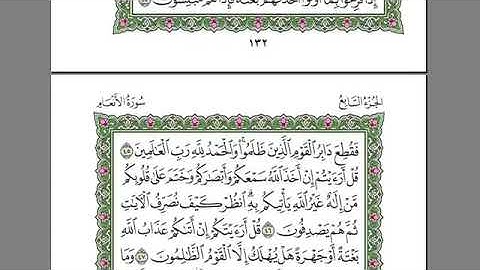 إِذَا فَرِحُوا۟ بِمَآ أُوتُوٓا۟ أَخَذْنَٰهُم بَغْتَةً فَإِذَا هُم مُّبْلِسُونَ
١٣٢
الجُزْءُ السَّابِعُ
سُورَةُ الأَنْعَامِ
فَقُطِعَ دَابِرُ ٱلْقَوْمِ ٱلَّذِينَ ظَلَمُوا۟ وَٱلْحَمْدُ لِلَّهِ رَبِّ ٱلْعَٰلَمِينَ ٤٥
قُلْ أَرَءَيْتُمْ إِنْ أَخَذَ ٱللَّهُ سَمْعَكُمْ وَأَبْصَٰرَكُمْ وَخَتَمَ عَلَىٰ قُلُوبِكُم
مَّنْ إِلَٰهٌ غَيْرُ ٱللَّهِ يَأْتِيكُم بِهِ ٱنظُرْ كَيْفَ نُصَرِّفُ ٱلْءَايَٰتِ
ثُمَّ هُمْ يَصْدِفُونَ ٤٦ قُلْ أَرَءَيْتَكُمْ إِنْ أَتَىٰكُمْ عَذَابُ ٱللَّهِ
بَغْتَةً أَوْ جَهْرَةً هَلْ يُهْلَكُ إِلَّا ٱلْقَوْمُ ٱلظَّٰلِمُونَ ٤٧ وَمَا